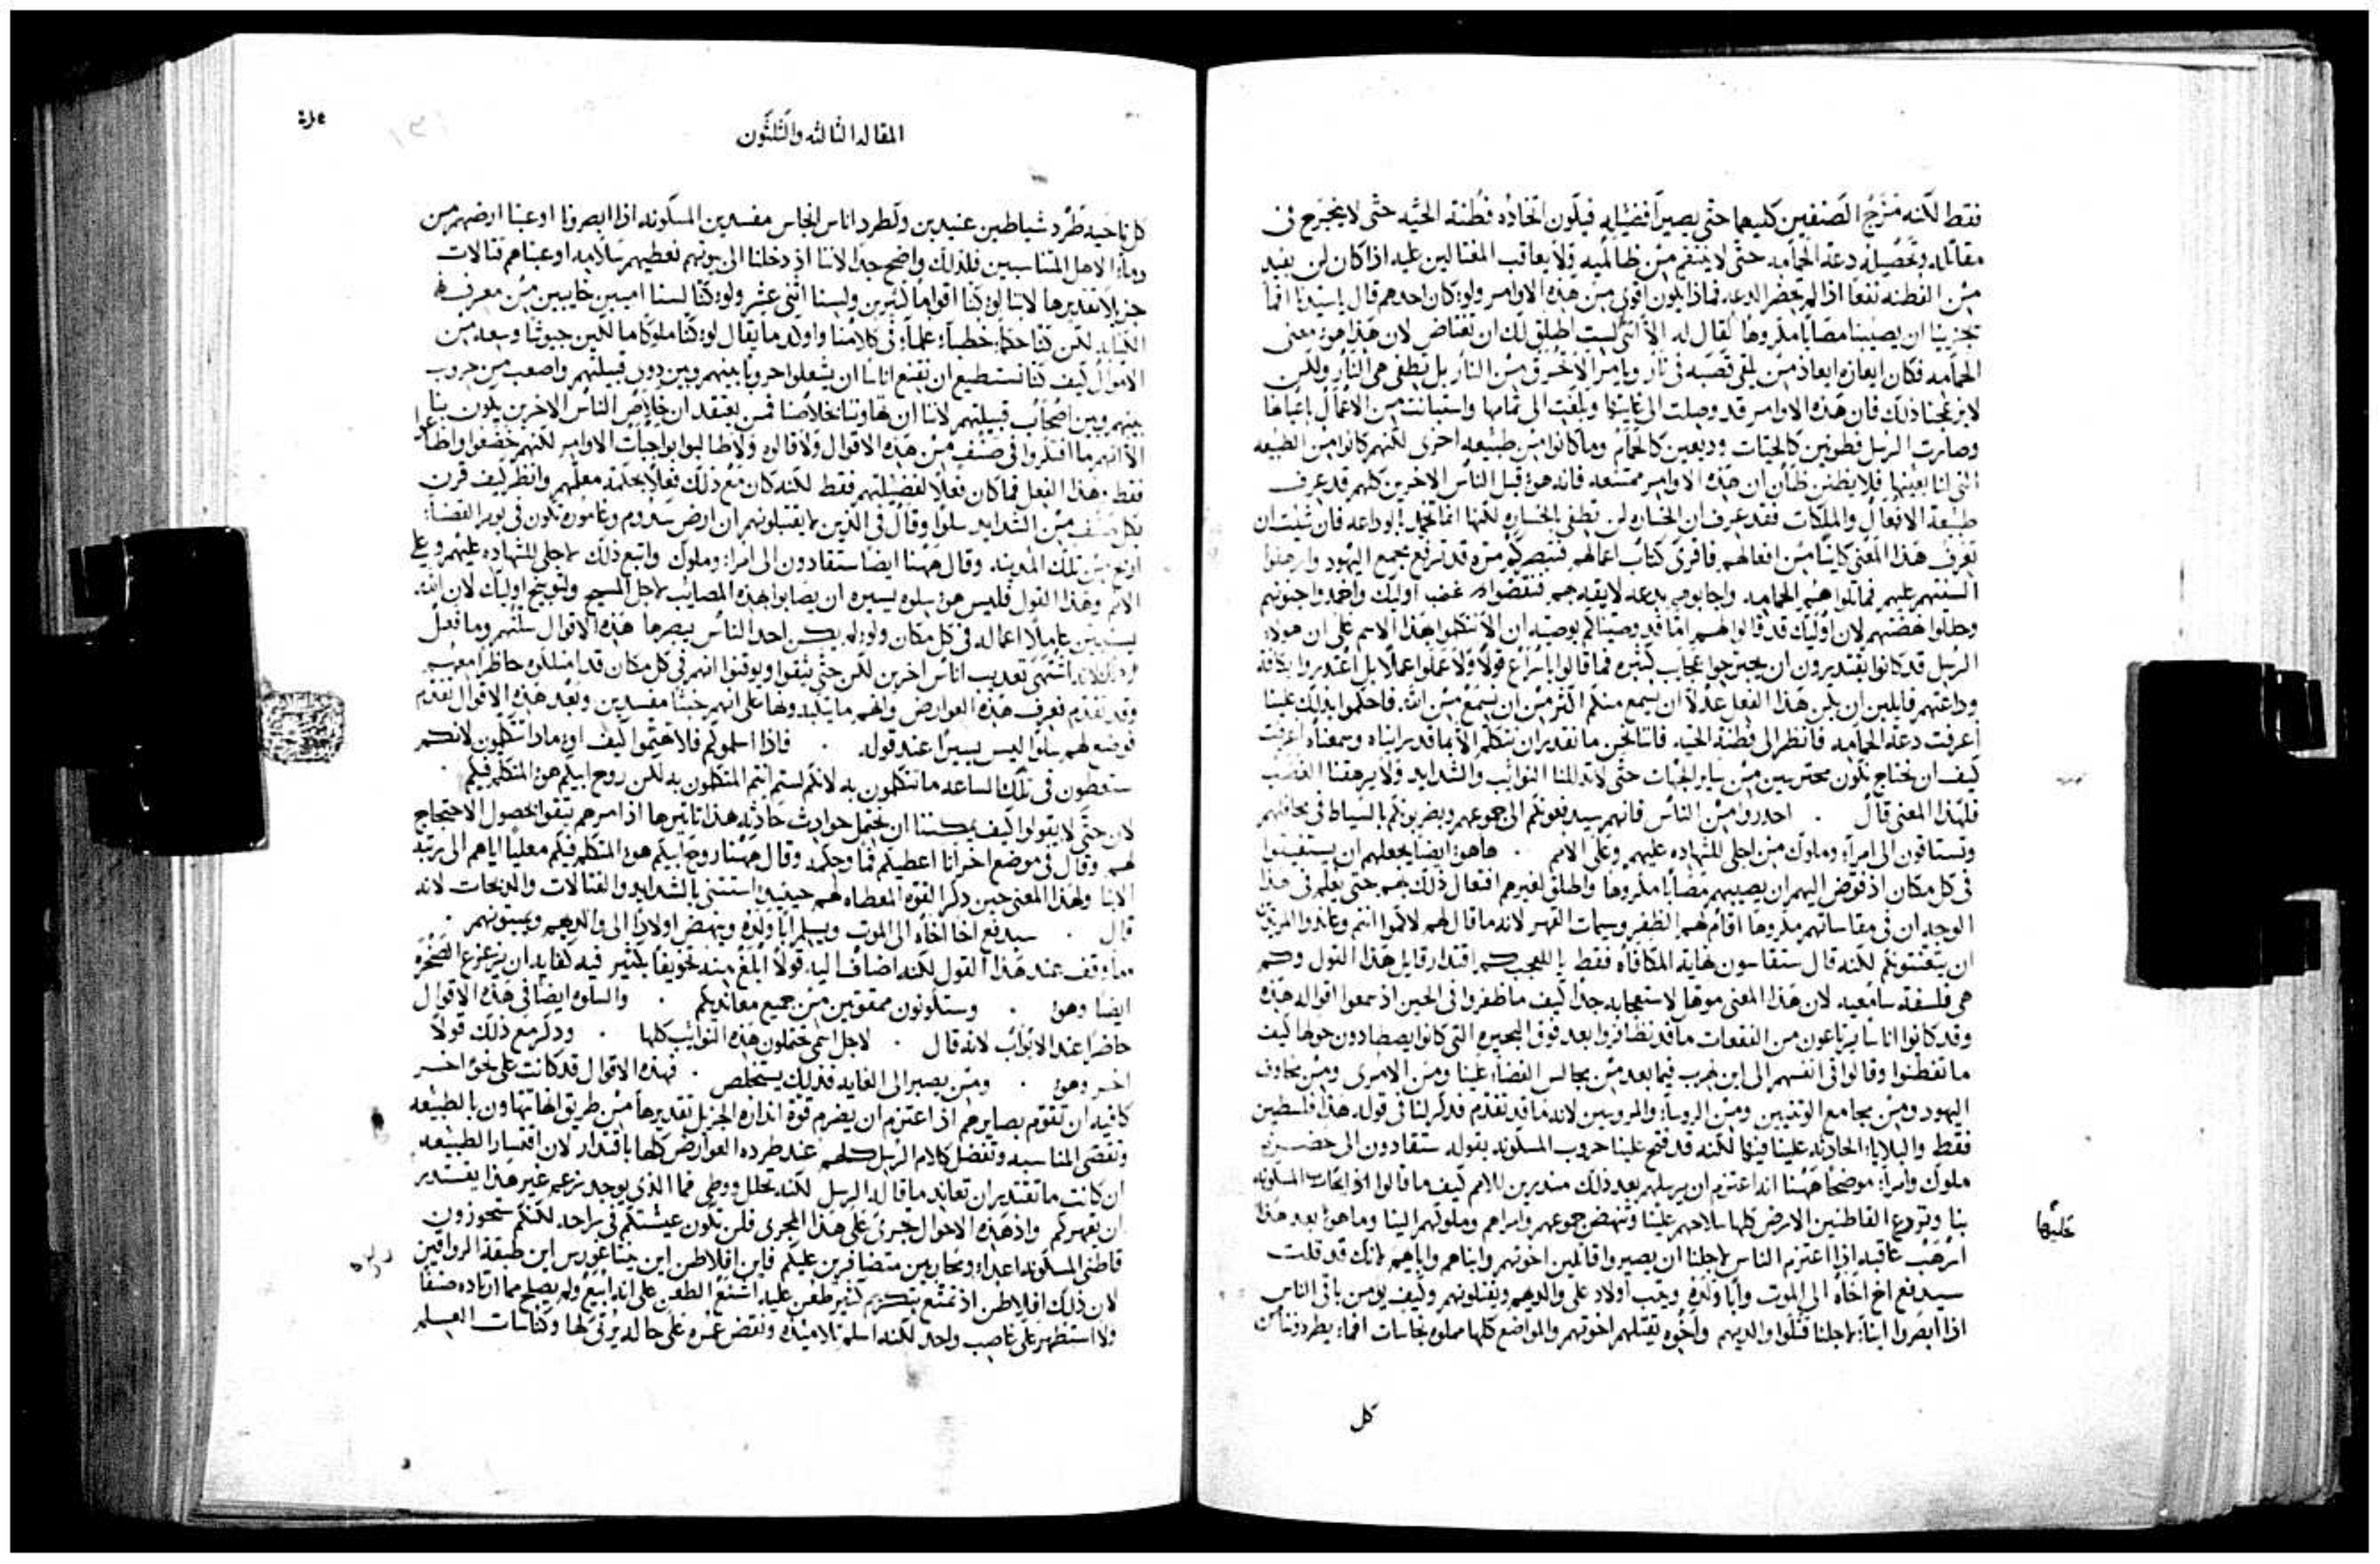 فقط لكنه مزج الصنفين كليهما حتى يصيرا فضيله فيكون اتخاذه فطنة الحيه حتى لا ينجرح في
مقاتله وتحصيله دعة الحمامه حتى لا ينتقم من ظالميه ولا يعاقب المغتالين عليه اذا كان لن يفيد
من الفطنه نفعا اذا لم تحضر الدعه فماذا يكون اقوى من هذه الاوامر ولو كان احدهم قال يا سيدنا اما
يجزينا ان يصيبنا مصابا مكروها لقال له الا انني لست اطلق لك ان تغتاض لان هذا هو معنى
الحمامه فكان ايعازه ايعاذ من يلقي قصبه في نار ويامر الا تحرق من النار بل تطفي هي النار ولكن
لا يزعجنا ذلك فان هذه الاوامر قد وصلت الى غايتها وبلغت الى تمامها واستبانت من الاعمال باعيانها
وصارت الرسل فطونين كالحيات وديعين كالحمام وما كانوا من طبيعه اخرى لكنهم كانوا من الطبيعه
التي لنا بعينها فلا يظنن ظان ان هذه الاوامر ممتنعه فانه هو قبل الناس الاخرين كلهم قد عرف
طبيعة الافعال والملكات فقد عرف ان الجساره لن تطفي الجساره لكنها انما تخمد بالوداعه فان شيت ان
تعرف هذا المعنى كاينا من افعالهم فاقرى كتاب اعمالهم فتبصر كم مره قد ترفع مجمع اليهود وارهفوا
السنتهم عليهم فماثلوا هم الحمامه واجابوهم بدعه لايقه بهم فنقضوا غضب اوليك واخمدوا جنونهم
وحللوا نهضتهم لان اوليك قد قالوا لهم اما قد وصيناكم بوصيه ان الا تتكلموا بهذا الاسم على ان هولاء
الرسل قد كانوا يقتدرون ان يجترحوا عجايب كثيره فما قالوا باسراع قولا ولا عملوا عملا بل اعتذروا بكافة
وداعتهم قايلين ان يكن هذا الفعل عدلا ان يسمع منكم اكثر من ان يسمع من الله فاحكموا بذلك علينا
اعرفت دعة الحمامه فانظر الى فطنة الحيه فاننا نحن ما نقدر ان نتكلم الا بما قد رايناه وسمعناه اعرفت
كيف ان نحتاج نكون محترسين من ساير الجهات حتى لا تذللنا النوايب والشدايد ولا يرهقنا الغضب
فلهذا المعنى قال . احدروا من الناس فانهم سيدفعونكم الى جموعهم ويضربونكم بالسياط في محافلهم
وتستاقون الى امراء وملوك من اجلي للشهاده عليهم وعلى الامم . هاهو ايضا يجعلهم ان يستفيقوا
في كل مكان اذ فوض اليهم ان يصيبهم مصابا مكروها واطلق لغيرهم افتعال ذلك بهم حتى يعلم في هذا
الوجد ان في مقاساتهم مكروها اقام لهم الظفر وسمات القهر لانه ما قال لهم لاكموا انتم وعاندوا المريدين
ان يتعنتوكم لكنه قال ستقاسون نهاية المكافاه فقط يا للعجب كم اقتدار قايل هذا القول وكم
هي فلسفة سامعيه لان هذا المعنى موهل لاستعجابه جدا كيف ما طفروا في الحين اذ سمعوا اقواله هذه
وقد كانوا اناسا يرتاعون من الفقعات ما قد تظافروا بعد فوق البحيره التي كانوا يصطادون حولها كيف
ما تفطنوا وقالوا في انفسهم الى اين نهرب فيما بعد من مجالس القضاء علينا ومن الامرى ومن محاوف
اليهود ومن مجامع الوثنيين ومن الروساء والمروسين لانه ما قد تقدم فذكر لنا في قوله هذا فلسطين
فقط والبلايا الحادثه علينا فيها لكنه قد فتح علينا حروب المسكونه بقوله ستقادون الى حضرة
ملوك وامراء موضحا ههنا انه اعتزم ان يرسلهم بعد ذلك منذرين للامم كيف ما قالوا اذ احاطت المسكونه
بنا وتورع القاطنين الارض كلها سلاحهم علينا وتنهض جموعهم وامراهم وملوكهم الينا وما هو بعد هذا
ارهب عاقبه اذا اعتزم الناس لاجلنا ان يصيروا قاتلين اخوتهم وابناهم واباهم لانك قد قلت
سيدفع اخ اخاه الى الموت واب ولده ويثب اولاد على والديهم ويقتلونهم وكيف يومن باقي الناس
اذا ابصروا ابناء لاجلنا قتلوا والديهم واخوه تقتلهم اخوتهم والمواضع كلها مملوه نجاسات افما يطردوننا كمن
كل
تحليها
المقاله الثالثه والثلثون
كل ناحيه طرد شياطين عنيدين ونطرد اناس انجاس مفسدين المسكونه اذا ابصرونا اوعبنا ارضهم من
دماء الاهل المتناسبين فلذلك واضح جدا لاننا اذ دخلنا الى بيوتهم نعطيهم سلامه اوعبناهم قتالات
جزيلا تقديرها لاننا لو كنا اقواما كثيرين ولسنا اثني عشر ولو كنا لسنا اميين خايبين من معرفة
الكتابه لكن كنا حكماء خطباء علماء في كلامنا واولد ما يقال لو كنا ملوكا مالكين جيوشا وسعه من
الاموال كيف كنا نستطيع ان نقنع اناسا ان يشعلوا حروبا بينهم وبين دوي قبيلتهم واصعب من حروب
بينهم وبين اصحاب قبيلتهم لاننا ان تهاوننا بخلاصنا فمن يعتقد ان خلاص الناس الاخرين يكون بنا
الا انهم ما افتكروا في صنف من هذه الاقوال ولا قالوه ولا طالبوا بواجبات الاوامر لكنهم خضعوا واطاعوا
فقط . هذا الفعل فما كان فعلا لفضيلتهم فقط لكنه كان مع ذلك فعلا بحكمة معلمهم وانظر كيف قرن
بكل صنف من الشدايد سلوا وقال في الذين لا يقتبلونهم ان ارض سدوم وغاموره تكون في يوم القضاء
اروح من تلك المدينه وقال ههنا ايضا ستقادون الى امراء وملوك واتبع ذلك لاجلي للشهاده عليهم وعلى
الامم وهذا القول فليس هو سلوه يسيره ان يصابوا بهذه المصايب لاجل المسيح ولتوبيخ اوليك لان الله
يستبين عاملا اعماله في كل مكان ولو لم يكن احد الناس يبصرها هذه الاقوال سلتهم وما فعل
ذلك لانه اشتهى تعديب اناس اخرين لكن حتى يثقوا ويوقنوا انهم في كل مكان قد امتلكوه حاظرا معهم
وقد تقدم فعرف هذه العوارض وانهم ما يتكبدونها على انهم خبثا مفسدين وبعد هذه الاقوال تقدم
فوضع لهم سلوا ليس يسيرا عند قوله . فاذا اسلموكم فلا تهتموا كيف او ماذا تتكلمون لانكم
ستعطون في تلك الساعه ما تتكلمون به لانكم لستم انتم المتكلمون به لكن روح ابيكم هو المتكلم فيكم .
لان حتى لا يقولوا كيف يمكننا ان نحتمل حوادث حادثه هذا تاثيرها اذ امرهم يثقوا بحصول الاحتجاج
لهم وقال في موضع اخر انا اعطيكم فما وحكمه وقال ههنا روح ابيكم هو المتكلم فيكم معليا اياهم الى مرتبة
الانبيا ولهذا المعنى حين ذكر القوه المعطاه لهم حينيذ استثنى بالشدايد والقتالات والذبحات لانه
قال . سيدفع اخا اخاه الى الموت ويسلم ابا ولده وينهض اولادا الى والديهم ويميتونهم .
وما وقف عند هذا القول لكنه اضاف اليه قولا ابلغ منه تخويفا بكثير فيه كفايه ان يزعزع الصخره
ايضا وهو . وستكونون ممقوتين من جميع معانديكم . والسلوه ايضا في هذه الاقوال
حاضرا عند الابواب لانه قال . لاجل اسمي تحتملون هذه النوايب كلها . وذكر مع ذلك قولا
اخر وهو . ومن يصبر الى الغايه فذلك يستخلص . فهذه الاقوال قد كانت على نحو اخر
كافيه ان تقوم بصايرهم اذ اعتزم ان يضرم قوة انذاره الجزيل تقديرها من طريق انها تتهاون بالطبيعه
وتقصي المناسبه وتفضل كلام الرسل كلهم عند طرده العوارض كلها باقتدار لان اقتسار الطبيعه
ان كانت ما تقتدر ان تعاند ما قاله الرسل لكنه تحلل ووطي فما الذي يوجد يزعم غير هذا يقتدر
ان يقهركم واذ هذه الاحوال جرى على هذا المجرى فلن تكون عيشتكم في براحه لكنكم ستحوزون
قاطني المسكونه اعداء ومحاربين متضافرين عليكم فاين افلاطن اين بيثاغورس اين طبقة الرواقيين
لان ذلك افلاطن اذ تمتع بتكريم كثير طعن عليه اشنع الطعن على انه ابيع ولم يصلح مما اراده صنفا
ولا استظهر على غاصب واحد لكنه اسلم تلاميذه ونقض عمره على حاله يرثى لها وكناسات العلم